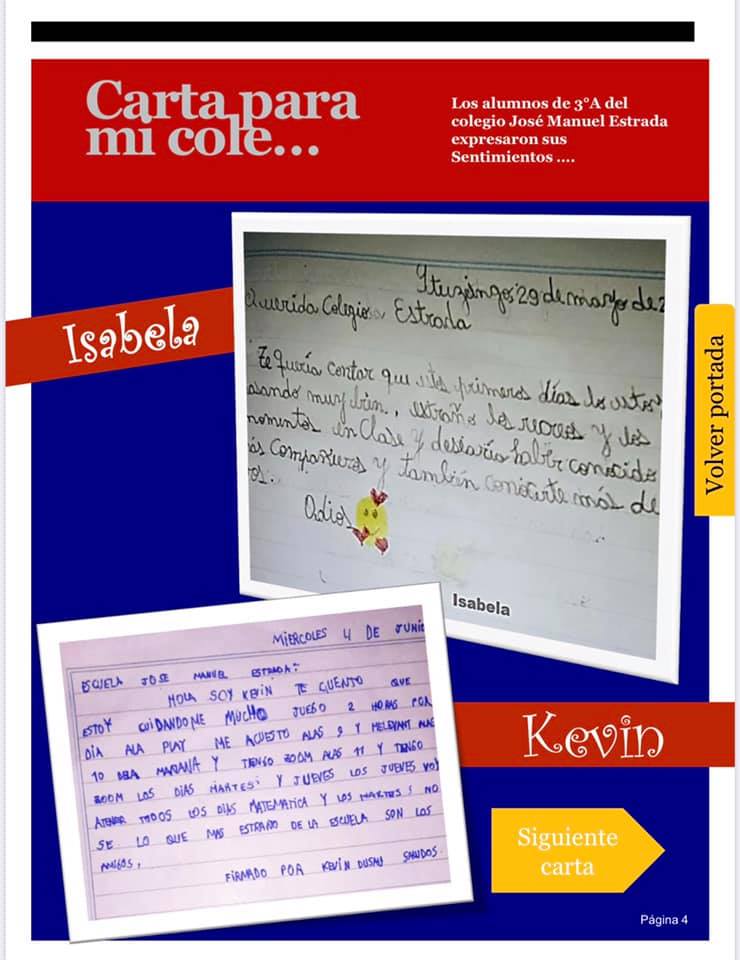 Carta para
mi cole...
Los alumnos de 3°A del
colegio José Manuel Estrada
expresaron sus
Sentimientos ....
Isabela
Ituzaingo 29 de mayo de 2
Querida Colegio Estrada
Te quería contar que estos primeros días los estoy
asando muy bien, extraño los recreos y los
momentos en Clase y desearía haber conocido
ás Compañeros y también conocerte más de
os.
Adios
Isabela
Volver portada
MIERCOLES 4 DE JUNIO
ESCUELA JOSE MANUEL ESTRADA:
HOLA SOY KEVIN TE CUENTO QUE
ESTOY CUIDANDOME MUCHO JUEGO 2 HORAS POR
DIA ALA PLAY ME ACUESTO ALAS 9 Y ME LEVANT ALAS
10 DELA MAÑANA Y TENGO ZOOM ALAS 11 Y TENGO
ZOOM LOS DIAS MARTES Y JUEVES LOS JUEVES VOY
ATENER TODOS LOS DIAS MATEMATICA Y LOS MARTES NO
SE LO QUE MAS ESTRAÑO DE LA ESCUELA SON LOS
AMIGOS.
FIRMADO POR KEVIN SALUDOS
Kevin
Siguiente
carta
Página 4